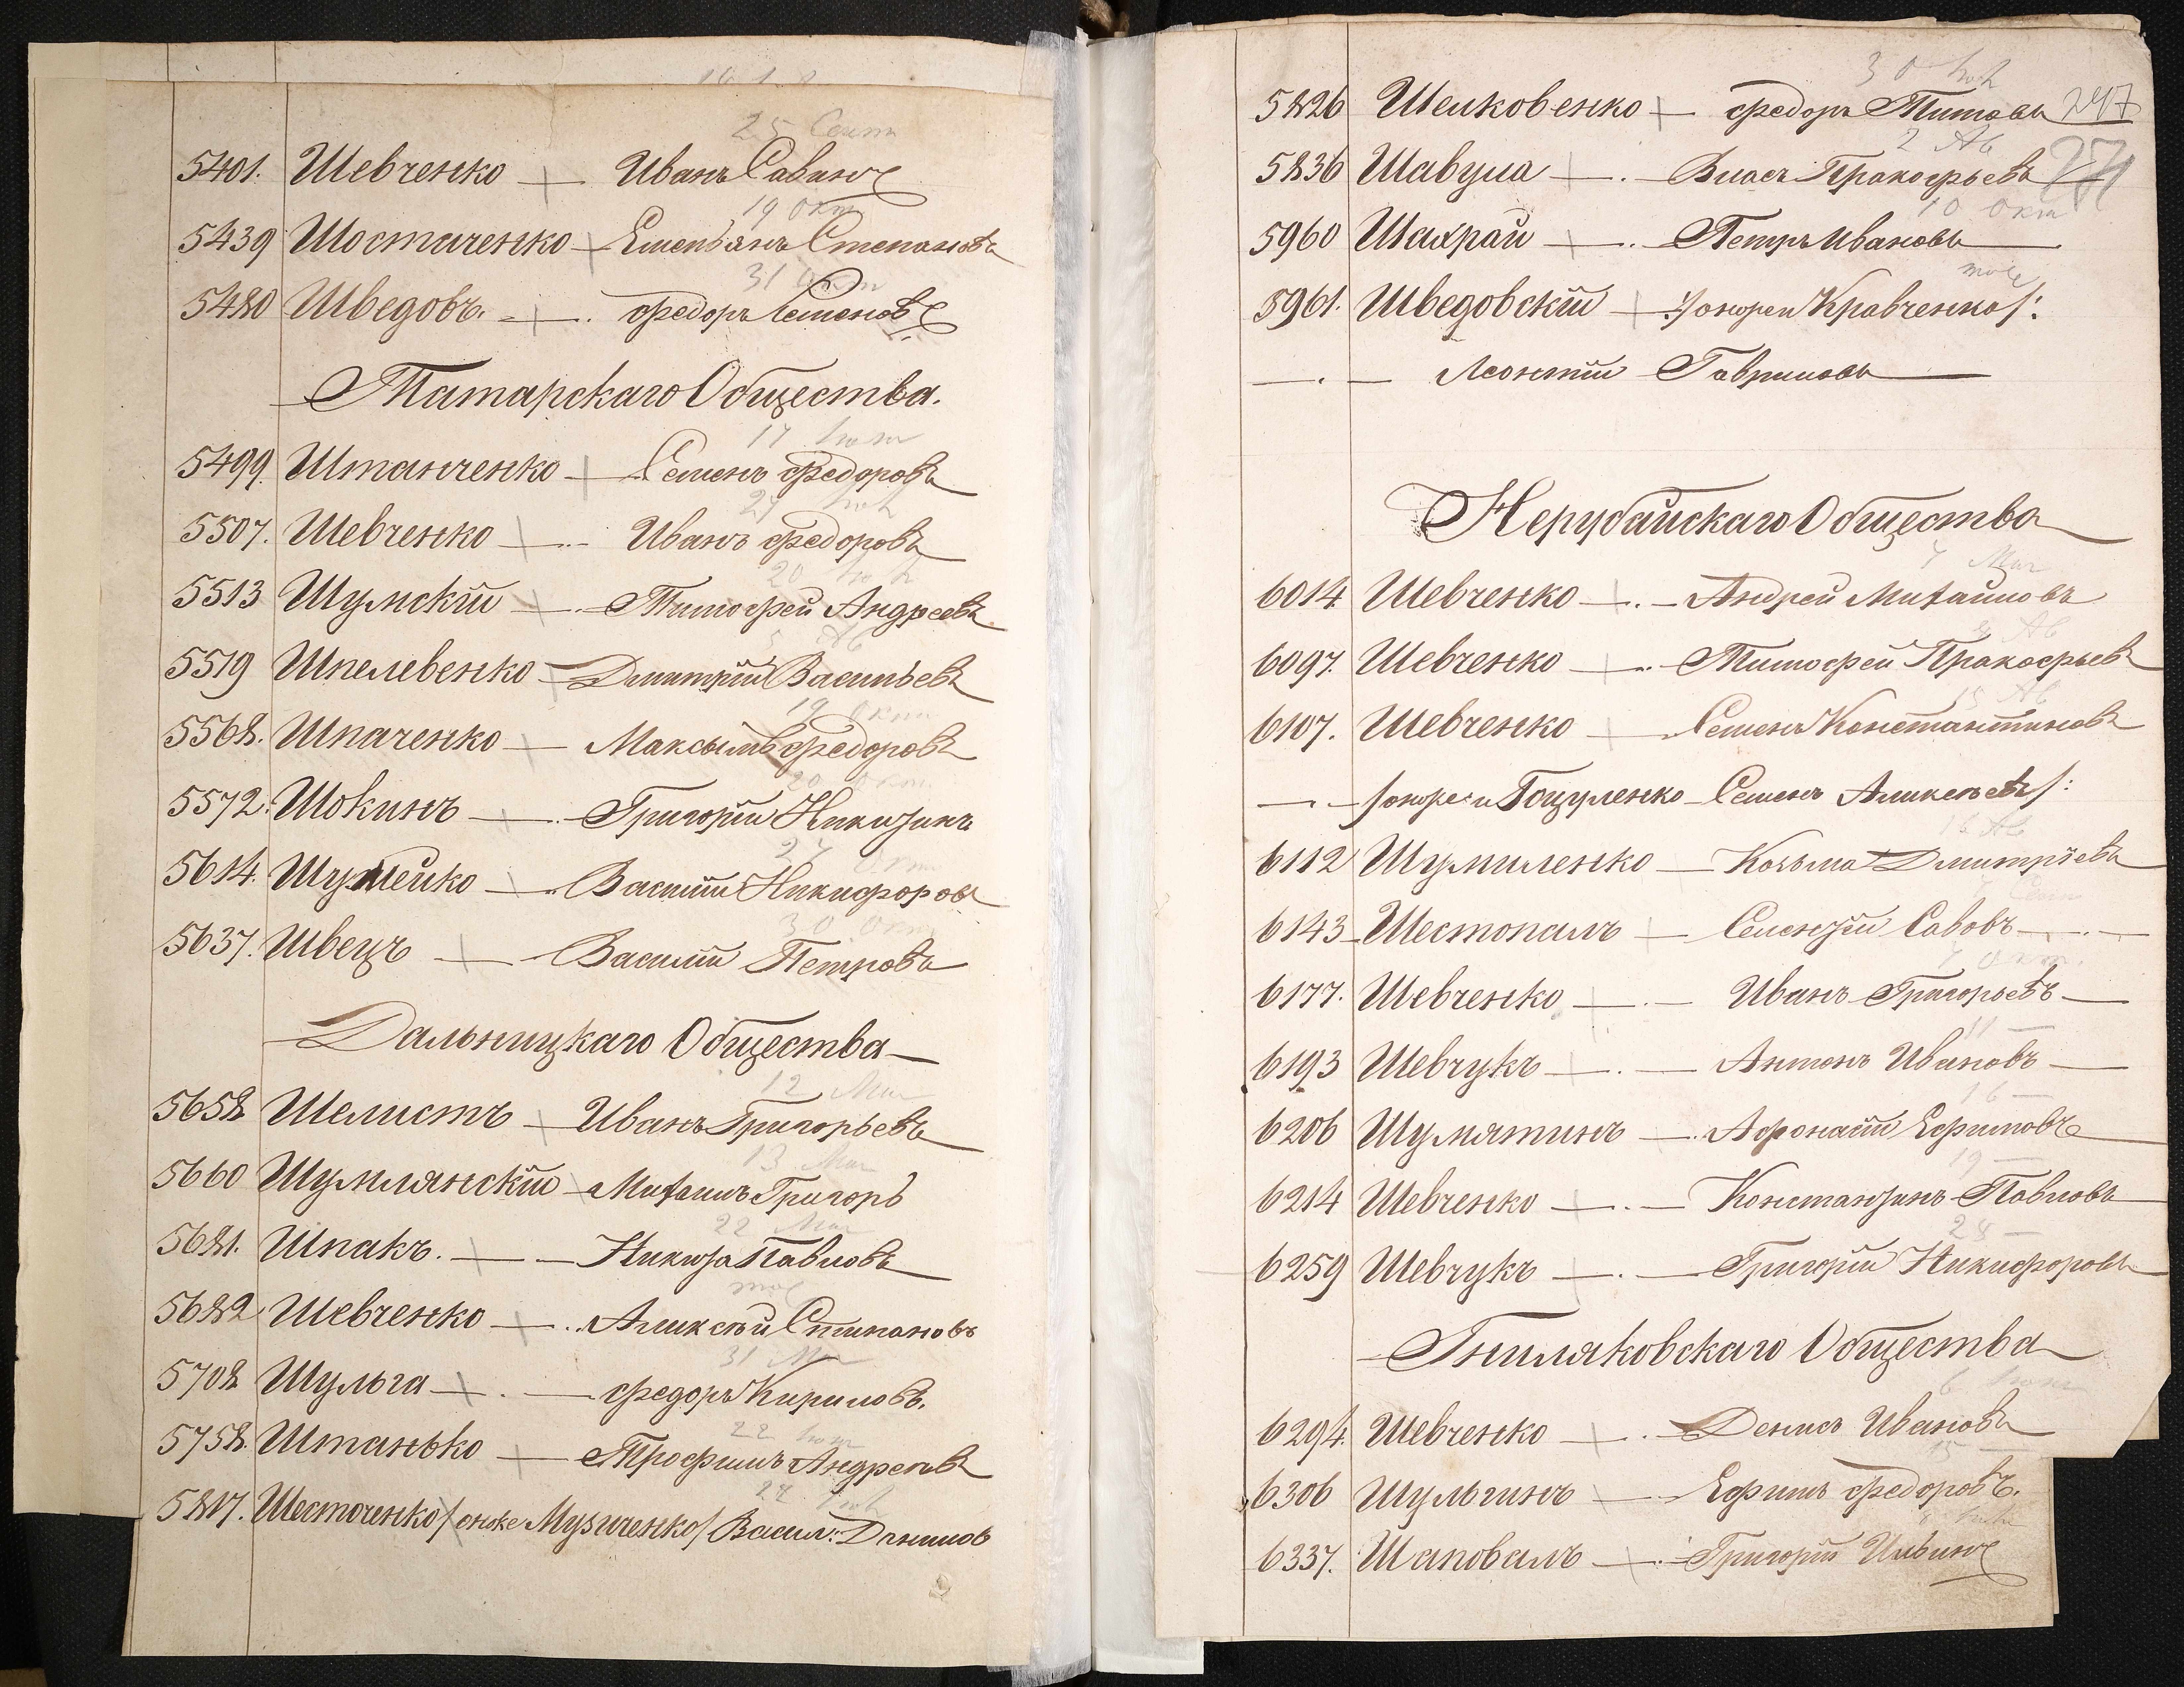 25 Сент
5401. Шевченко — Иванъ Савинъ
19 Окт
5439 Шостаченко — Емельянъ Степановъ
31 Окт
5480 Шведовъ. — Федоръ Семеновъ
Татарскаго Общества.
5499. Штанченко — Семенъ Федоровъ
5507. Шевченко — Иванъ Федоровъ
5513 Шумскій — Тимофей Андреевъ
5519 Шпелевенко — Дмитрій Васильевъ
19 Окт
5568. Шпаченко — Максымъ Федоровъ
20 Окт
5572. Шокинъ — Григорій Никитинъ
27 Окт
5614. Шумейко — Василій Никифоровъ
30 Окт
5637. Швецъ — Василій Петровъ
Дальницкаго Общества
12 Маи
5658 Шелистъ — Иванъ Григорьевъ
13 Маи
5660 Шумлянскій — Михаилъ Григорь
22 Маи
5681. Шпакъ. — Никита Павловъ
тоже
5682 Шевченко — Аликсѣй Стипановъ
31 Ма
5708 Шульга — Федоръ Кириловъ.
22
5758. Штанько — Трофимъ Андреевъ
5817. Шесточенко / онже Музиченко / Васил: Даниловъ
30
5826 Шелковенко — Федоръ Титовъ 247
2 Ав
5836 Шавула — Власъ Пракофьевъ
10 Окт
5960 Шахрай — Петръ Ивановъ
тоже
5961. Шведовскій — :/ онжеи Кравченко /:
— Леонтій Гавриловъ
Нерубайскаго Общества
7 Маи
6014 Шевченко — Андрей Михайловъ
Ав
6097. Шевченко — Тимофей Пракофьевъ
Ав
6107. Шевченко — Семенъ Константиновъ
— / онже и Гоцуленко — Семенъ Аликсѣевъ /:
Ав
6112 Шумиленко — Козьма Дмитріевъ
Сент
6143 Шестопалъ — Сыенгій Савовъ
7 Окт.
6177. Шевченко — Иванъ Григорьевъ
11 —
6193 Шевчукъ — Антонъ Ивановъ
16 —
6206 Шумятинъ — Афонасій Ефимовъ
19 —
6214 Шевченко — Константинъ Павловъ
24 —
6259 Шевчукъ — Григорій Никифоровъ
Гниляковскаго Общества
6294. Шевченко — Денисъ Ивановъ
15 —
6306 Шульгинъ — Ефимъ Федоровъ.
6337. Шаповалъ — Григорій Ильинъ